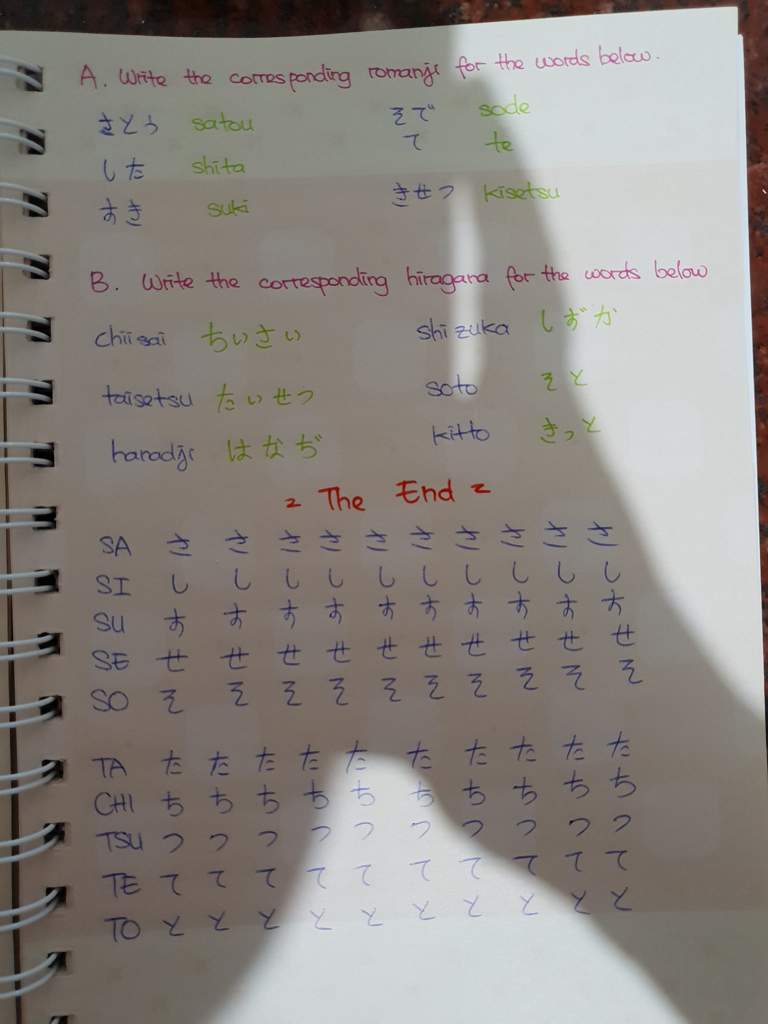 A. Write the corresponding romanji for the words below.
さとう satou そで sode
て te
した shita
すき suki きせつ kisetsu
B. Write the corresponding hiragana for the words below
chiisai ちいさい shizuka しずか
taisetsu たいせつ soto そと
hanadji はなぢ kitto きっと
~ The End ~
SA さ さ さ さ さ さ さ さ さ さ
SI し し し し し し し し し し
SU す す す す す す す す す す
SE せ せ せ せ せ せ せ せ せ せ
SO そ そ そ そ そ そ そ そ そ そ
TA た た た た た た た た た た
CHI ち ち ち ち ち ち ち ち ち ち
TSU つ つ つ つ つ つ つ つ つ つ
TE て て て て て て て て て て
TO と と と と と と と と と と